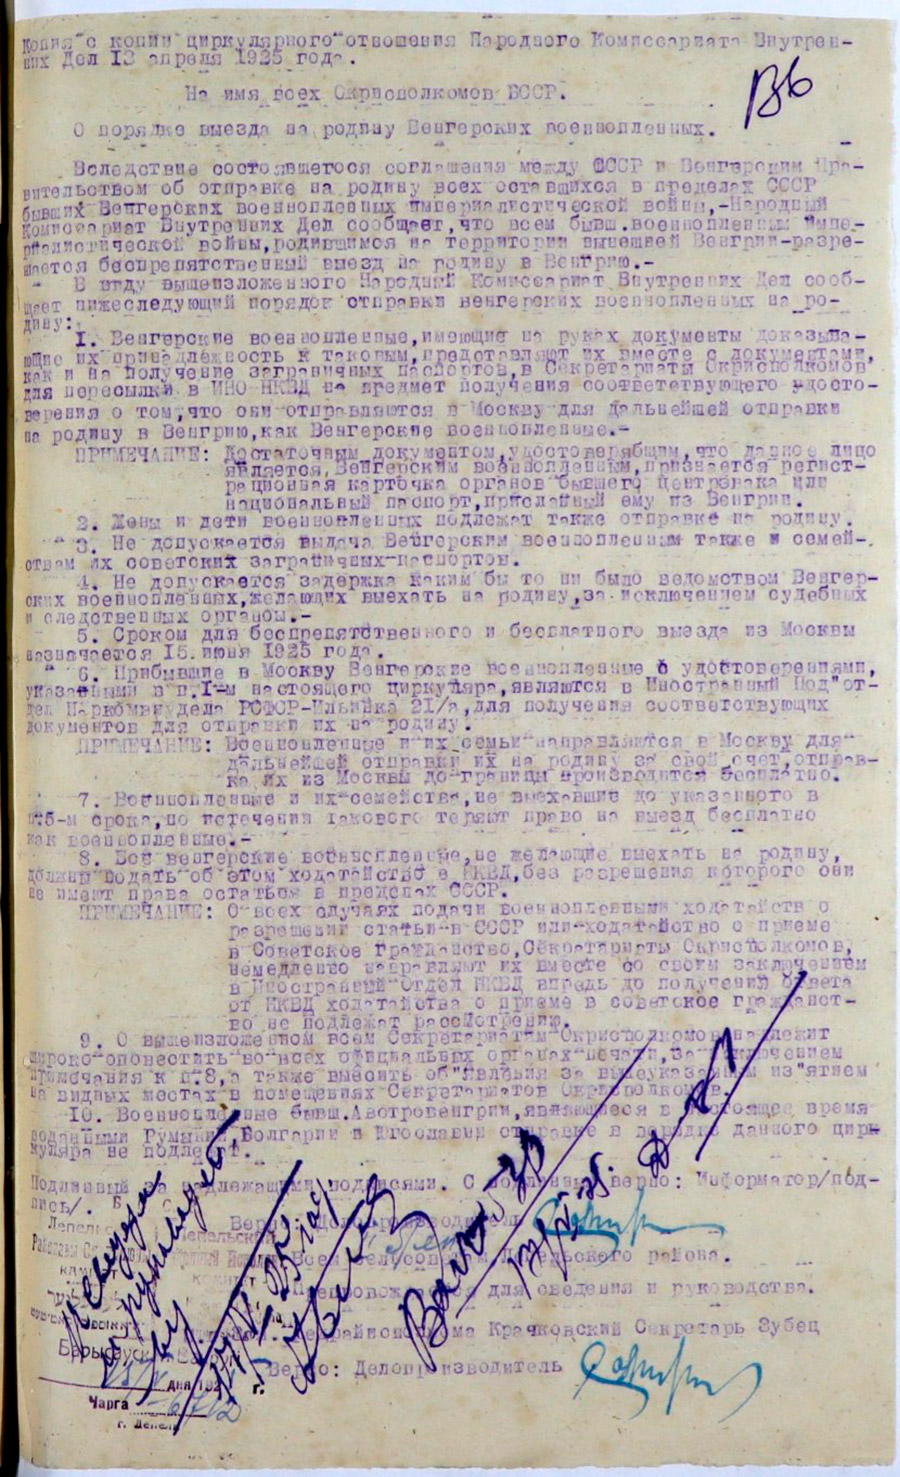 Копия с копии циркулярного отношения Народного Комиссариата Внутрен-
них Дел 13 апреля 1925 года.
На имя всех Окрисполкомов БССР.
О порядке выезда на родину Венгерских военнопленных.
Вследствие состоявшегося соглашения между СССР и Венгерским Пра-
вительством об отправке на родину всех оставшихся в пределах СССР
бывших Венгерских военнопленных империалистической войны,-Народный
Комиссариат Внутренних Дел сообщает,что всем бывш.военнопленным импе-
риалистической войны,родившимся на территории нынешней Венгрии-разре-
шается беспрепятственный выезд на родину в Венгрию.-
В виду вышеизложенного Народный Комиссариат Внутренних Дел сооб-
щает нижеследующий порядок отправки венгерских военнопленных на ро-
дину:
1. Венгерские военнопленные,имеющие на руках документы доказыва-
ющие их принадлежность к таковым,представляют их вместе с документами,
как и на получение заграничных паспортов,в Секретариаты Окрисполкомов
для пересылки в ИНО НКВД на предмет получения соответствующего удосто-
верения о том,что они отправляются в Москву для дальнейшей отправки
на родину в Венгрию,как Венгерские военнопленные.-
ПРИМЕЧАНИЕ: Достаточным документом,удостоверяющим,что данное лицо
является,Венгерским военнопленным,признается регист-
рационная карточка органов бывшего Центроэвака или
национальный паспорт,присланный ему из Венгрии.
2. Жены и дети военнопленных подлежат также отправке на родину.
3. Не допускается выдача Венгерским военнопленным также и семей-
ствам их советских заграничных паспортов.
4. Не допускается задержка каким бы то ни было ведомством Венгер-
ских военнопленных,желающих выехать на родину,за исключением судебных
и следственных органом.-
5. Сроком для беспрепятственного и бесплатного выезда из Москвы
назначается 15 июня 1925 года.
6. Прибывшие в Москву Венгерские военнопленные с удостоверениями,
указанными в п.1-м настоящего циркуляра,являются в Иностранный Под"от-
дел Наркомвнудела РСФСР-Ильинка 21/а,для получения соответствующих
документов для отправки их на родину.
ПРИМЕЧАНИЕ: Военнопленные и их семьи направляются в Москву для
дальнейшей отправки их на родину за свой счет,отправ-
ка их из Москвы до границы производится бесплатно.
7. Военнопленные и их семейства,не выехавшие до указанного в
п.5-м срока,по истечении такового теряют право на выезд бесплатно
как военнопленные.-
8. Все венгерские военнопленные,не желающие выехать на родину,
должны подать об этом ходатайство в НКВД,без разрешения которого они
не имеют права остаться в пределах СССР.
ПРИМЕЧАНИЕ: О всех случаях подачи военнопленными ходатайств о
разрешении статьи в СССР или ходатайство о приеме
в Советское Гражданство,Секретариаты Окрисполкомов,
немедленно направляют их вместе со своим заключением
в Иностранный Отдел НКВД впредь до получения ответа
от НКВД ходатайства о приеме в советское гражданст-
во не подлежат рассмотрению.
9. О вышеизложенном всем Секретариатам Окрисполкомов надлежит
широко оповестить во всех официальных органах печати,за исключением
примечания к п.8,а также вывесить об"явления за вышеуказанным из"ятием
на видных местах в помещениях Секретариатов Окрисполкомов.
10. Военнопленные бывш.Австровенгрии,являющиеся в настоящее время
подданными Румынии,Болгарии и Югославии отправке в порядке данного цирк
куляра не подлежат.
Подлинный за надлежащими подписями. С подлинным верно: Информатор/под-
пись/.
Верно: Делопроизводитель
Всем сельсоветам Лепельского района.
Препровождается для сведения и руководства.
Райисполкома Крачковский Секретарь Зубец
Верно: Делопроизводитель
дня 192 г.
Чарга
г. Лепель